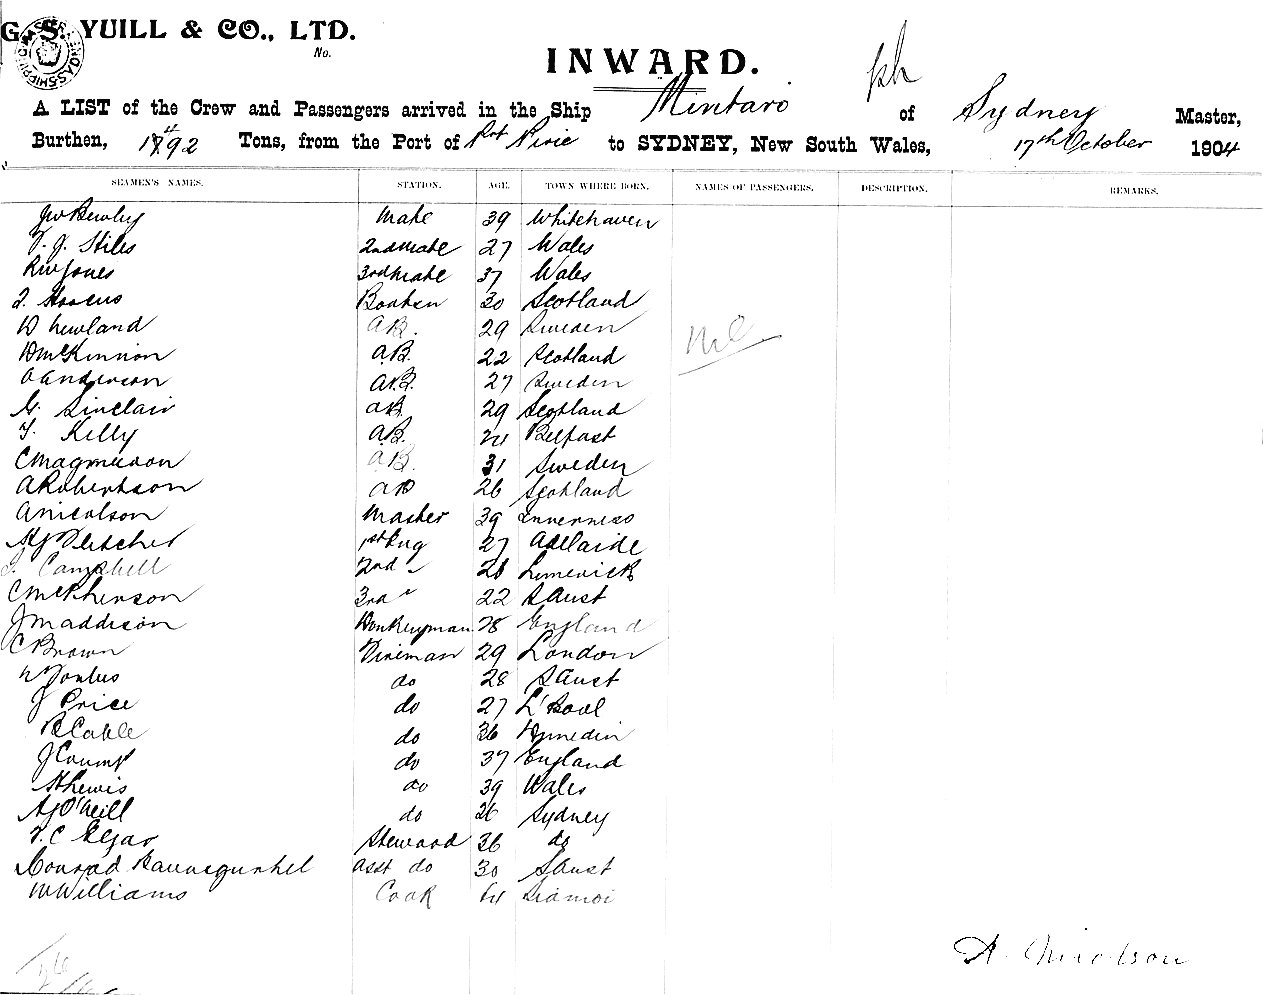 G. S. YUILL & CO., LTD.
No.
INWARD.
A LIST of the Crew and Passengers arrived in the Ship Mintaro of Sydney Master,
Burthen, 1492 Tons, from the Port of Port Pirie to SYDNEY, New South Wales, 17th October 1904
SEAMEN'S NAMES. STATION. AGE. TOWN WHERE BORN. NAMES OF PASSENGERS. DESCRIPTION. REMARKS.
Mate 39 Whitehaven
J. Stiles 2nd Mate 27 Wales
RW Jones 3rd Mate 37 Wales
30 Scotland
A.B. 29 Sweden
D McKinnon A.B. 22 Scotland
A Anderson A.B. 27 Sweden
G. Sinclair AB 29 Scotland
T. Kelly A.B. Belfast
Nil
C Magnuson A.B. 31 Sweden
A Robertson AB 26 Scotland
A Nicolson Master 39 Inverness
Fletcher 1st Eng 27 Adelaide
Campbell 2nd " 26 Limerick
C McPherson 3rd " 22 S Aust
J Maddison Donkeyman 28 England
C Brown Fireman 29 London
do 28 S Aust
J Price do 27 L'Pool
R Cable do 36 Dunedin
J Crump do 37 England
H Lewis do 39 Wales
A J O'Neill do 26 Sydney
C Elgar Steward 36 do
Conrad asst do 30 S Aust
W Williams Cook
A. Nicolson